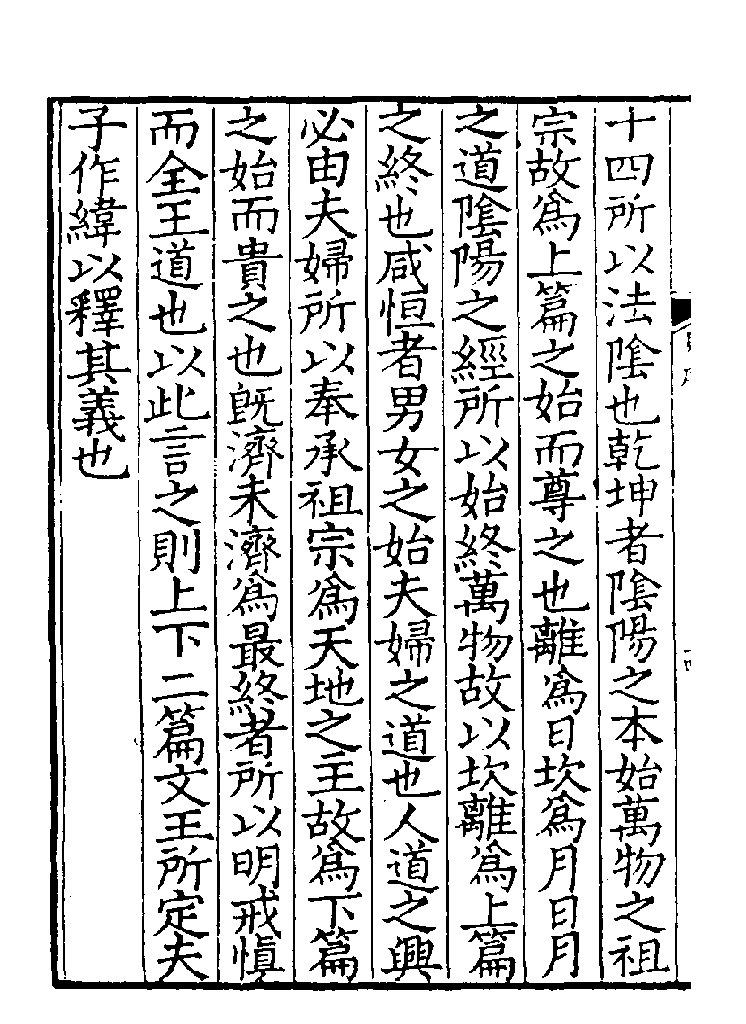 十四所以法陰也乾坤者陰陽之本始萬物之祖
宗故爲上篇之始而尊之也離爲日坎爲月日月
之道陰陽之經所以始終萬物故以坎離爲上篇
之終也咸恒者男女之始夫婦之道也人道之興
必由夫婦所以奉承祖宗爲天地之主故爲下篇
之始而貴之也旣濟未濟爲最終者所以明戒愼
而全王道也以此言之則上下二篇文王所定夫
子作緯以釋其義也